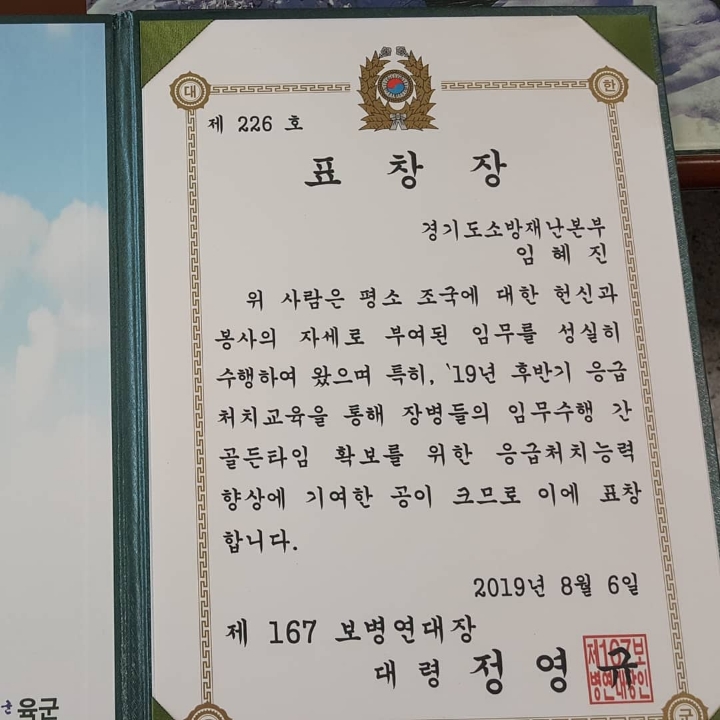 대 한
제 226 호
표 창 장
경기도소방재난본부
임 혜 진
위 사람은 평소 조국에 대한 헌신과
봉사의 자세로 부여된 임무를 성실히
수행하여 왔으며 특히, '19년 후반기 응급
처치교육을 통해 장병들의 임무수행 간
골든타임 확보를 위한 응급처치능력
향상에 기여한 공이 크므로 이에 표창
합니다.
2019년 8월 6일
제 167 보병연대장
대령 정 영 규
제167보
병연대장인
육군
군